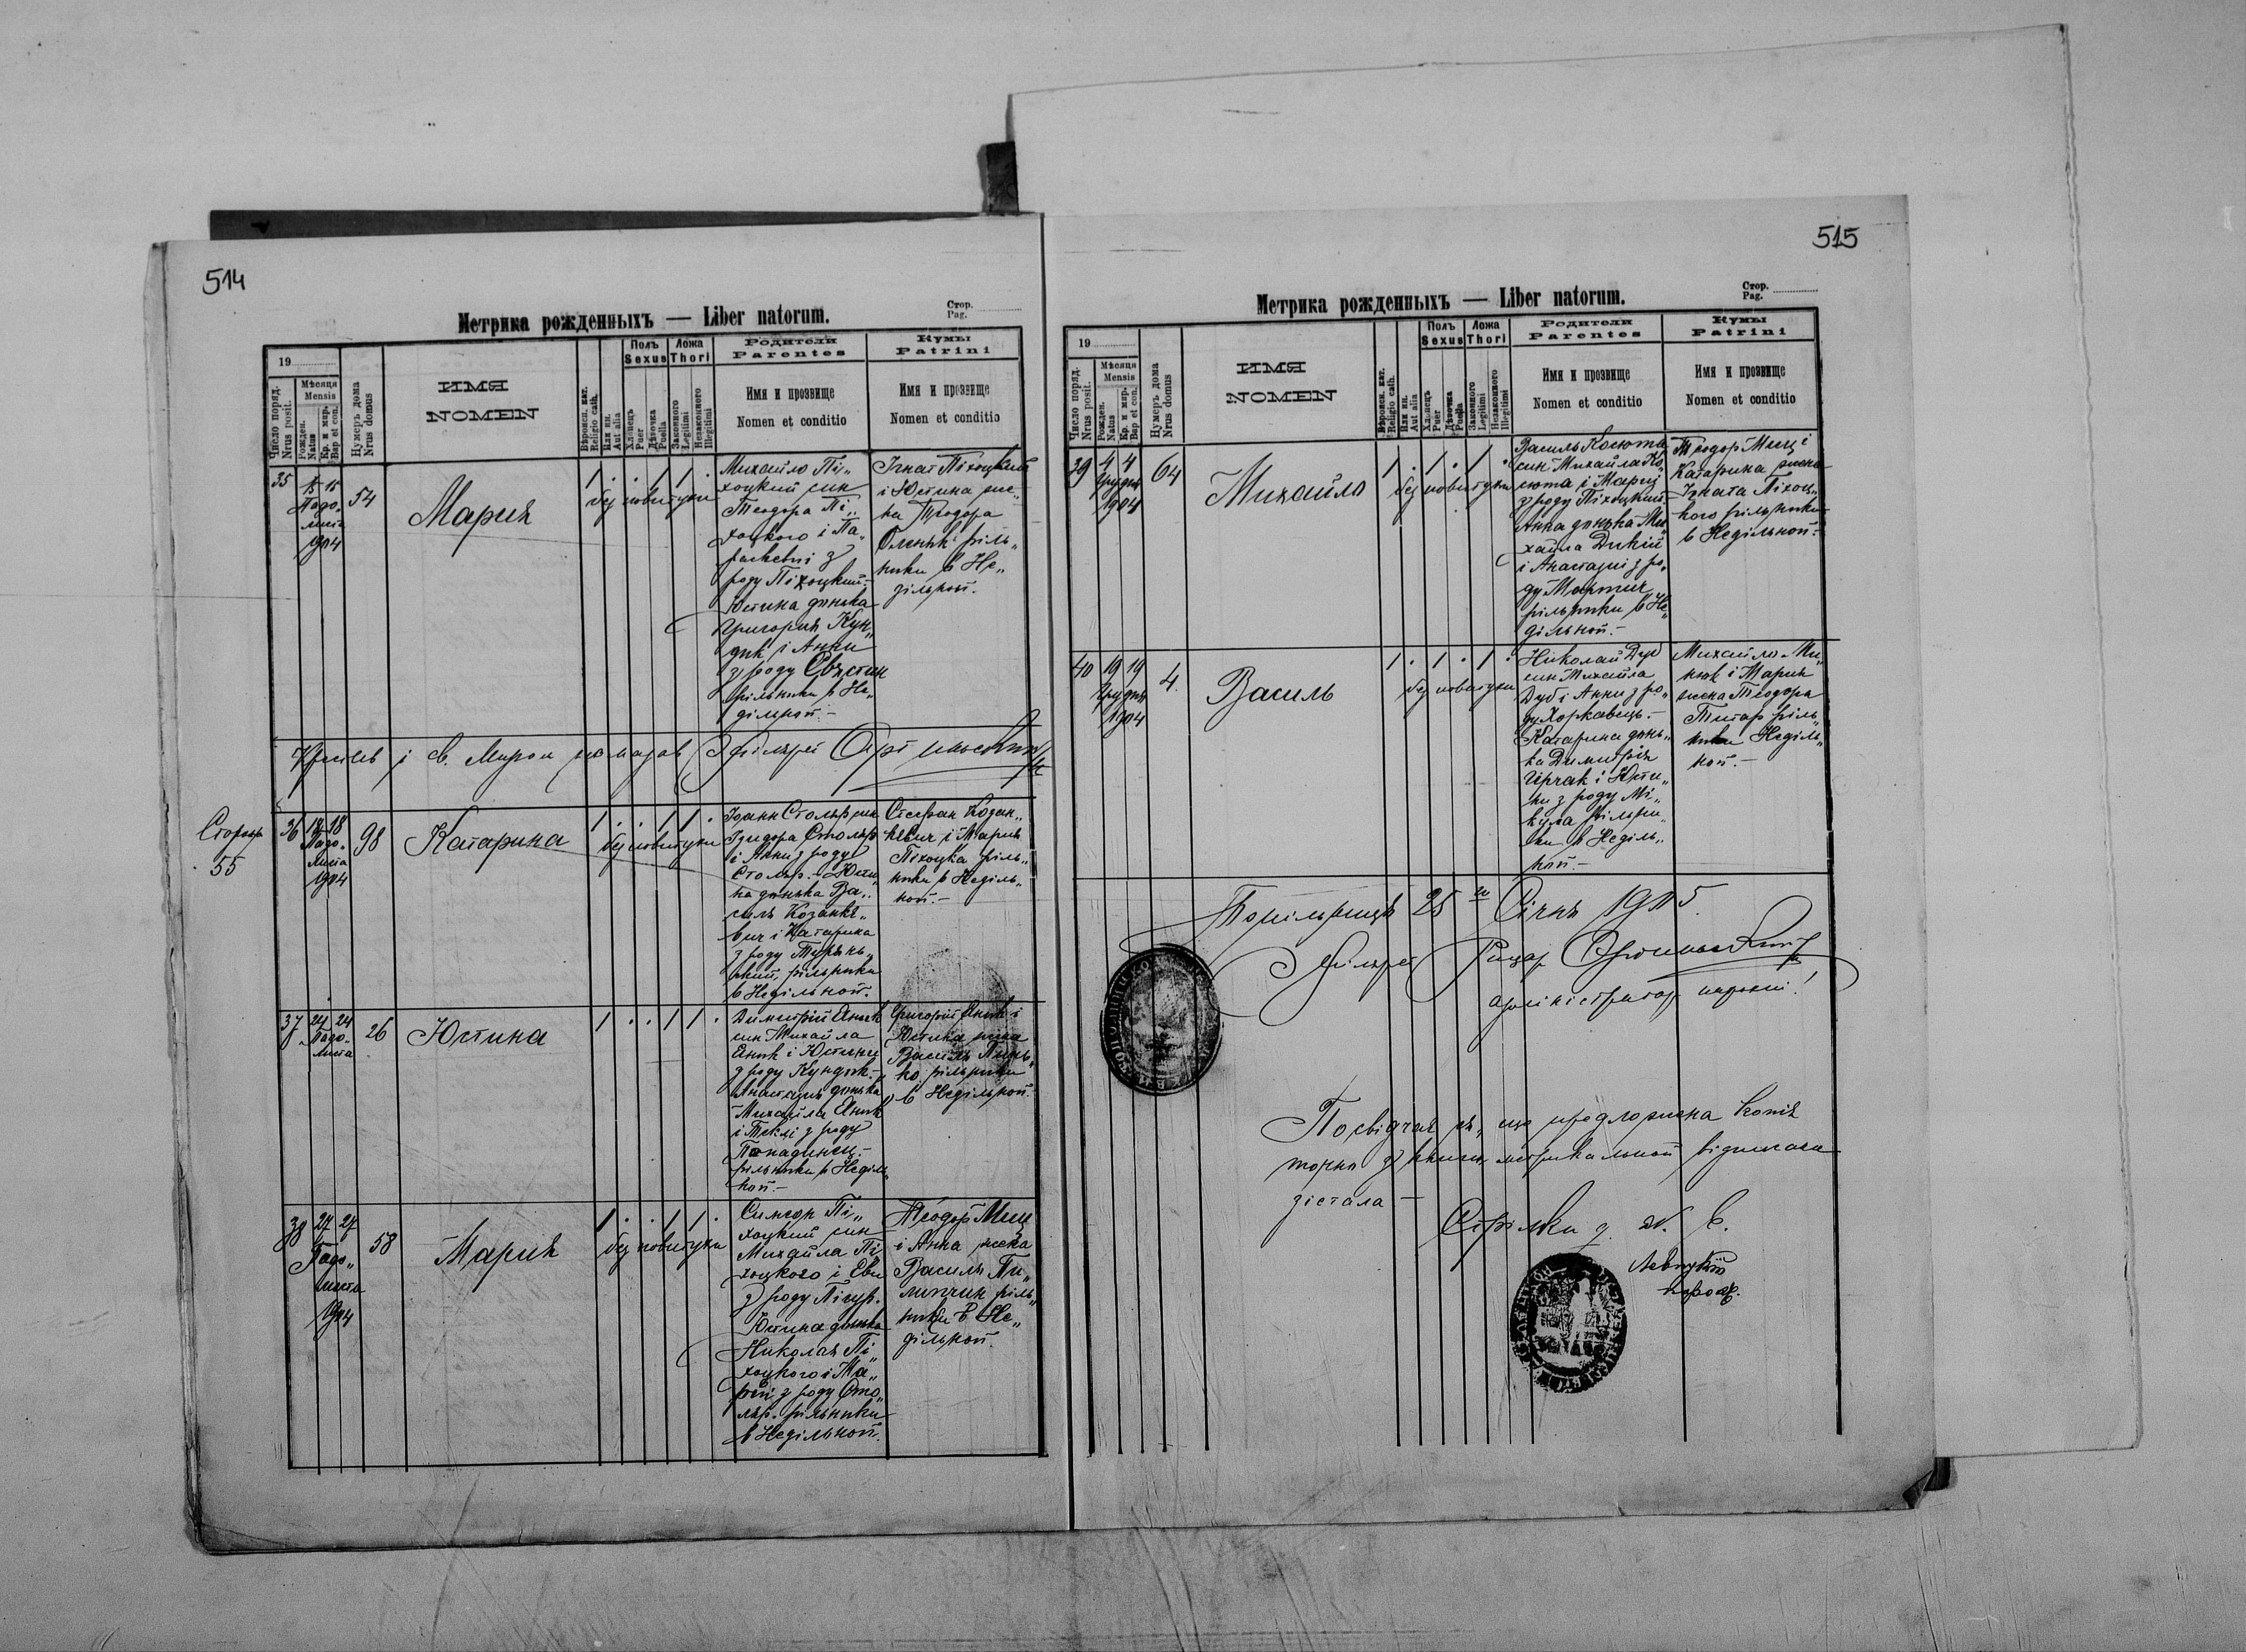 514
Метрика рожденныхъ — Liber natorum.
Стор.
Pag.
19
Число поряд.
Nrus posit.
Мѣсяця
Mensis
Рожден.
Natus
Кр. и мир.
Bap et con.
Нумеръ дома
Nrus domus
ИМЯ
NOMEN
Вѣроисп. каѳ.
Religio cath.
Или ин.
Aut alia
Полъ
Sexus
Хлопець
Puer
Дѣвочка
Puella
Ложа
Thori
Законного
Legitimi
Незаконного
Illegitimi
Родители
Parentes
Имя и прозвище
Nomen et conditio
Кумы
Patrini
Имя и прозвище
Nomen et conditio
35
15 15
Падо-
листа
1904
54
Мария
1 . . 1 1 .
без повитухи
Михайло Пі„
хоцкий син
Теодора Пі„
хоцкого і Па„
раскевиі з
роду Піхоцкий.-
Юстина донька
Григория Кун„
дик і Анни
з роду
рільники в Не„
дільной.-
Ігнат Піхоцкий
і Юстина жін„
ка Теодора
Оленяк ріль„
ники в Не„
дільной.
Крестив і св. Миром помазав
Сторона
55
36
18 18
Падо-
листа
1904
98
Катарина
1 . . 1 1 .
без повитухи
Іоанн Столяр син
Ізидора Столяр
і Анни з роду
Столяр.- Юсти„
на донька Ва„
силя Козанке„
вич і Катарина
з роду
рільники
в Недільной.
Стефан Козан„
кевич і Мария
Піхоцка ріль„
ники в Неділь„
ной.-
37
24 24
Падо-
листа
26
Юстина
1 . . 1 1 .
Димитрій Яняк
син Михайла
Яняк і Юстини
з роду Кундик.-
Анастазия донька
Михайла Яняк
і Теклі з роду
Панадинец.-
рільники в Неділь„
ной.-
Григорій Яняк і
Юстина жінка
Василя
рільники
в Недільной.
38
27 27
Падо„
листа
1904
58
Мария
1 . . 1 1 .
без повитухи
Симеон Пі„
хоцкий син
Михайла Пі„
хоцкого і Еви
з роду
Юстина донька
Николая Пі„
хоцкого і Ма„
риї з роду Сто„
ляр. рільники
в Недільной.
Теодор Миц
і Анна жінка
Василя Пи„
липчик ріль„
ники в Не„
дільной.
515
Метрика рожденныхъ — Liber natorum.
Стор.
Pag.
19
Число поряд.
Nrus posit.
Мѣсяця
Mensis
Рожден.
Natus
Кр. и мир.
Bap et con.
Нумеръ дома
Nrus domus
ИМЯ
NOMEN
Вѣроисп. каѳ.
Religio cath.
Или ин.
Aut alia
Полъ
Sexus
Хлопець
Puer
Дѣвочка
Puella
Ложа
Thori
Законного
Legitimi
Незаконного
Illegitimi
Родители
Parentes
Имя и прозвище
Nomen et conditio
Кумы
Patrini
Имя и прозвище
Nomen et conditio
39
4 4
Грудня
1904
64
Михайло
1 . 1 . 1 .
без повитухи
Василь Косюта
син Михайла Ко„
сюта і Мариї
з роду Піхоцкий.-
Анна донька Ми„
хайла Дикій
і Анастазиі з ро„
ду Мартич
рільники в Не„
дільной.-
Теодор Миц і
Катарина жінка
Ігната Піхоц„
кого рільники
в Недільной.-
40
19 19
Грудня
1904
4.
Василь
1 . 1 . 1 .
без повитухи
Николай Дуб
син Михайла
Дуб і Анни з ро„
ду Хоркавець.-
Катарина донь„
ка Димитрия
Цірчак і Юсти„
ни з роду Мі„
кула рільни„
ки в Неділь„
ной.-
Михайло
і Мария
жінка Теодора
Титар ріль„
ники Неділь„
ной.-
25 го Січня 1905.
адміністратор парохії.
Посвідчая ся, що предложена копія
точно з книги метрикальной відписана
зістала —
Стрілки д.
парох.